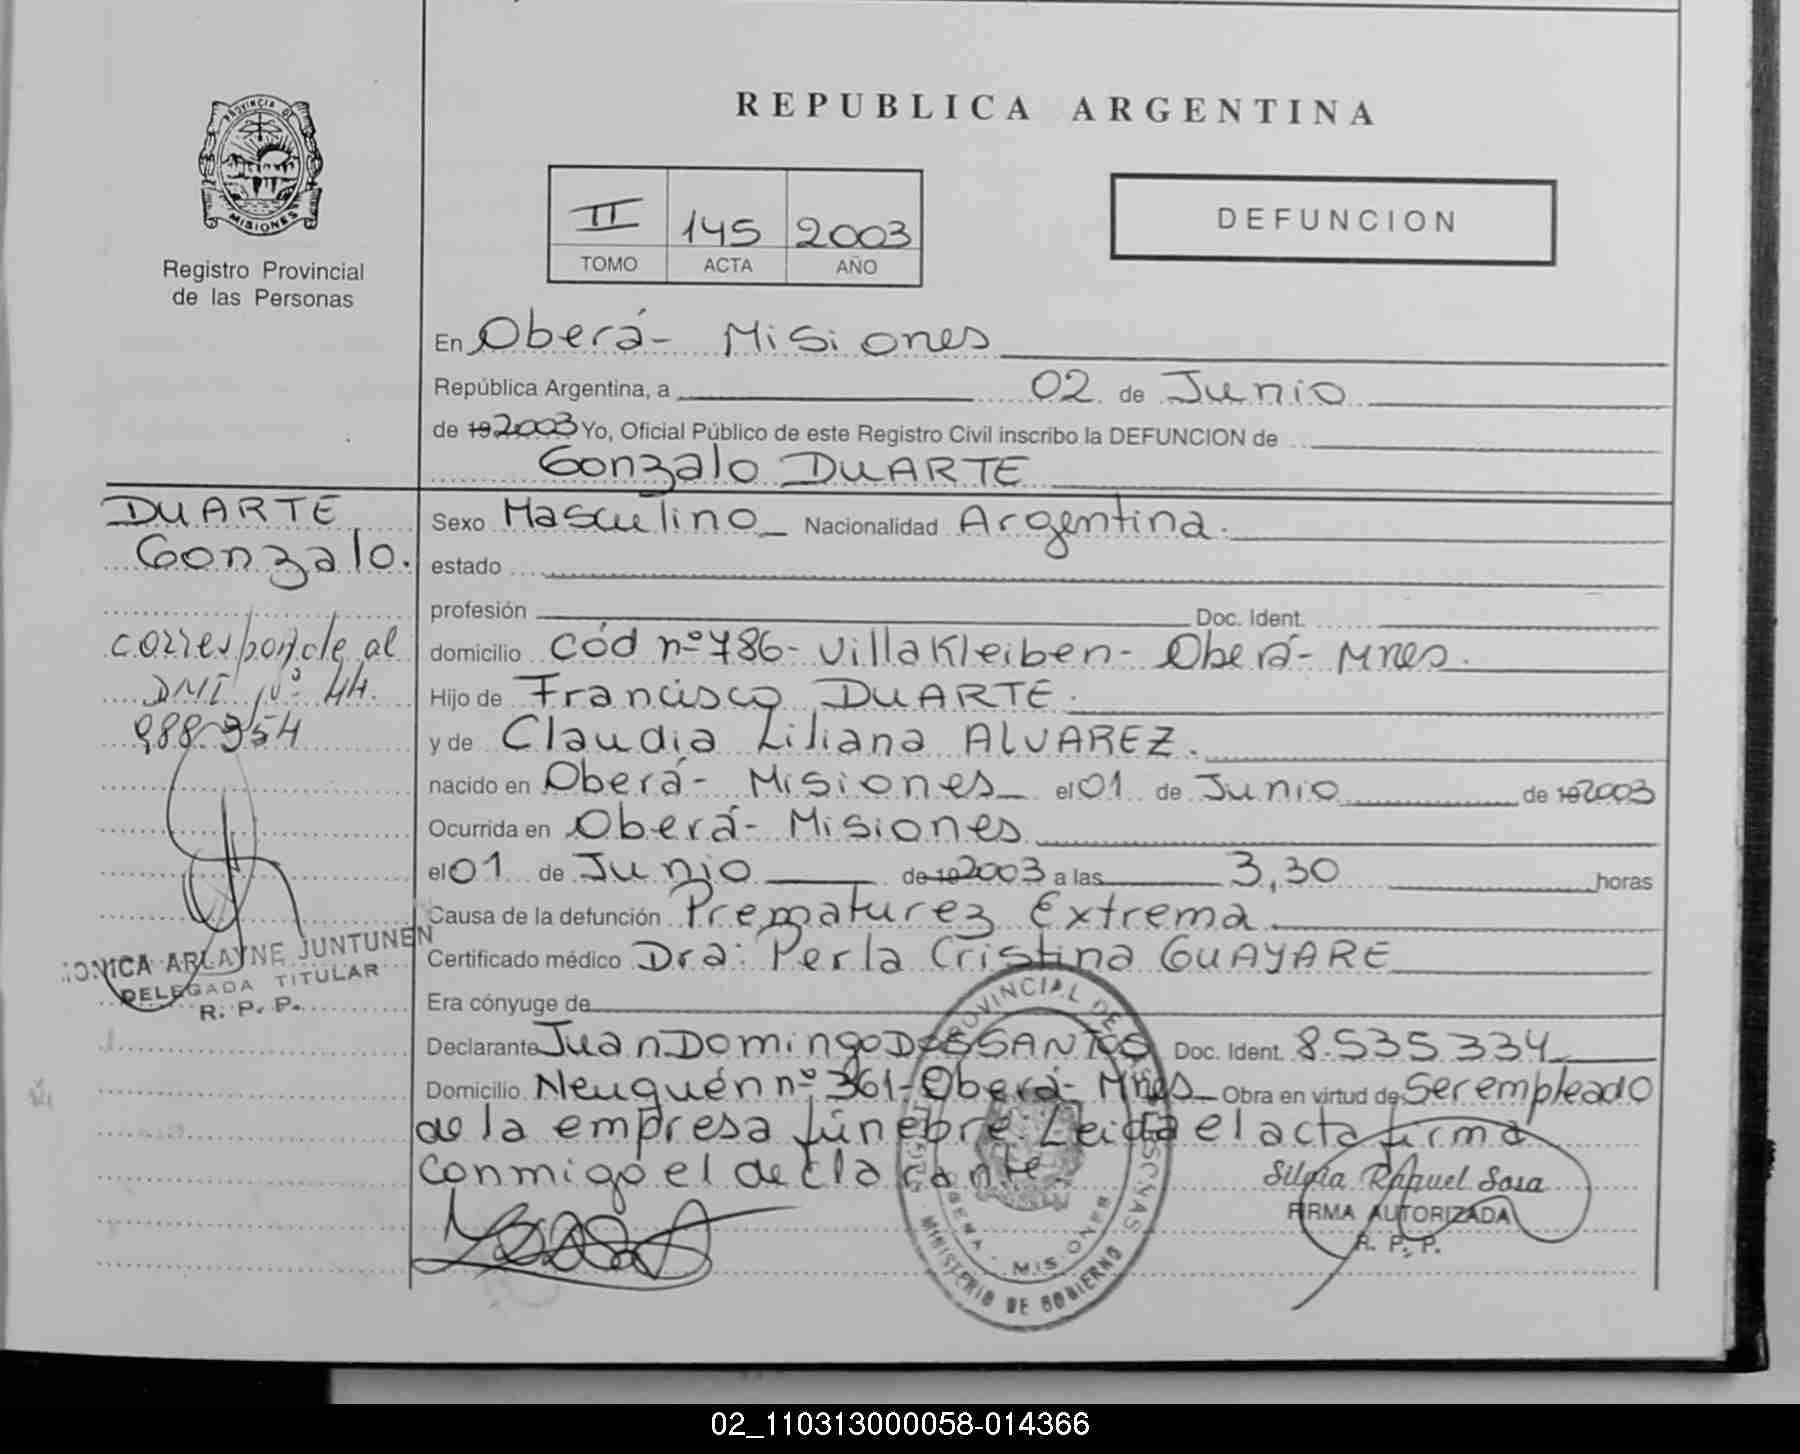 REPUBLICA ARGENTINA
PROVINCIA DE
MISIONES
Registro Provincial
de las Personas
II 145 2003
TOMO ACTA AÑO
DEFUNCION
En Oberá - Misiones
República Argentina, a 02 de Junio
de 19 2003 Yo, Oficial Público de este Registro Civil inscribo la DEFUNCION de
Gonzalo DUARTE
DUARTE
Gonzalo.
corresponde al
DNI Nº 44.
988.354
MONICA ARLAYNE JUNTUNEN
DELEGADA TITULAR
R. P. P.
Sexo Masculino Nacionalidad Argentina.
estado
profesión Doc. Ident.
domicilio Cód nº 786 - Villa Kleiben - Oberá - Mnes.
Hijo de Francisco DUARTE.
y de Claudia Liliana ALVAREZ.
nacido en Oberá - Misiones el 01 de Junio de 19 2003
Ocurrida en Oberá - Misiones
el 01 de Junio de 19 2003 a las 3,30 horas
Causa de la defunción Prematurez Extrema
Certificado médico Dra: Perla Cristina GUAYARE
Era cónyuge de
Declarante Juan Domingo DOS SANTOS Doc. Ident. 8.535.334
Domicilio Neuquén nº 361 - Oberá - Mnes Obra en virtud de Ser empleado
de la empresa fúnebre. Leida el acta firma
conmigo el declarante.
PROVINCIAL DE LAS PERSONAS
MISIONES
MINISTERIO DE GOBIERNO
Silvia Raquel Sosa
FIRMA AUTORIZADA
R. P. P.
02_110313000058-014366